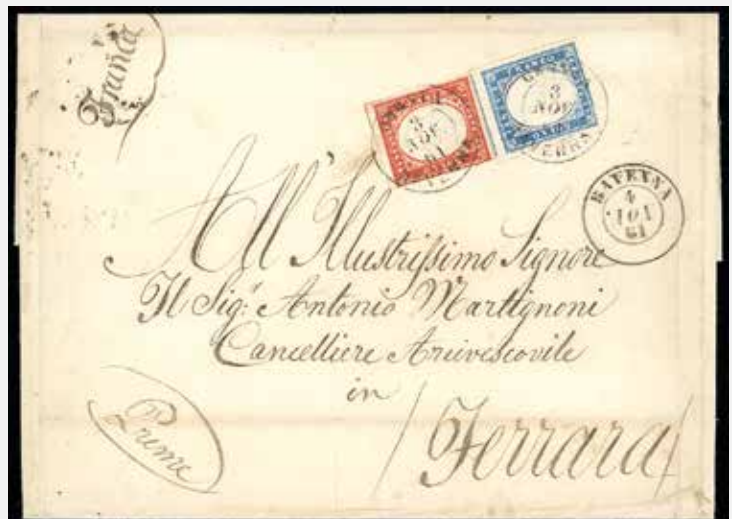 Franca
3
NOV
61
3
NOV
RAVENNA
4
NOV
61
All'Illustrissimo Signore
Il Sigr. Antonio Martignoni
Cancelliere Arcivescovile
in
Ferrara
Preme